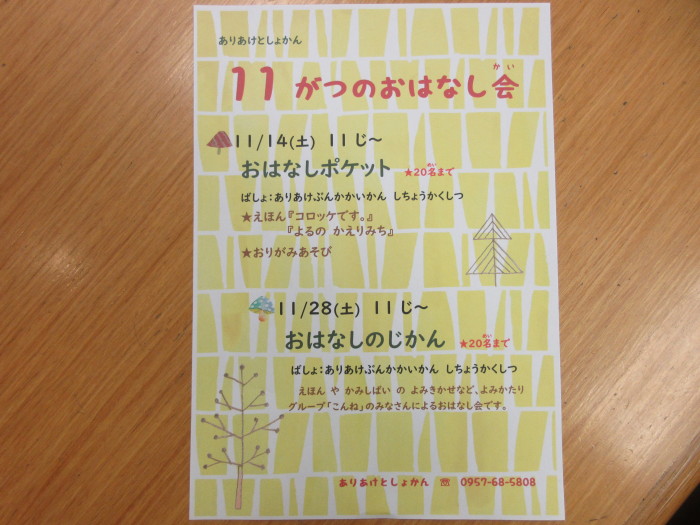 ありあけとしょかん
11 がつのおはなし会
かい
11/14(土) 11じ～
おはなしポケット ★20名まで
めい
ばしょ：ありあけぶんかかいかん しちょうかくしつ
★えほん『コロッケです。』
『よるの かえりみち』
★おりがみあそび
11/28(土) 11じ～
おはなしのじかん ★20名まで
めい
ばしょ：ありあけぶんかかいかん しちょうかくしつ
えほん や かみしばい の よみきかせなど、よみかたり
グループ「こんね」のみなさんによるおはなし会です。
ありあけとしょかん ☏ 0957-68-5808